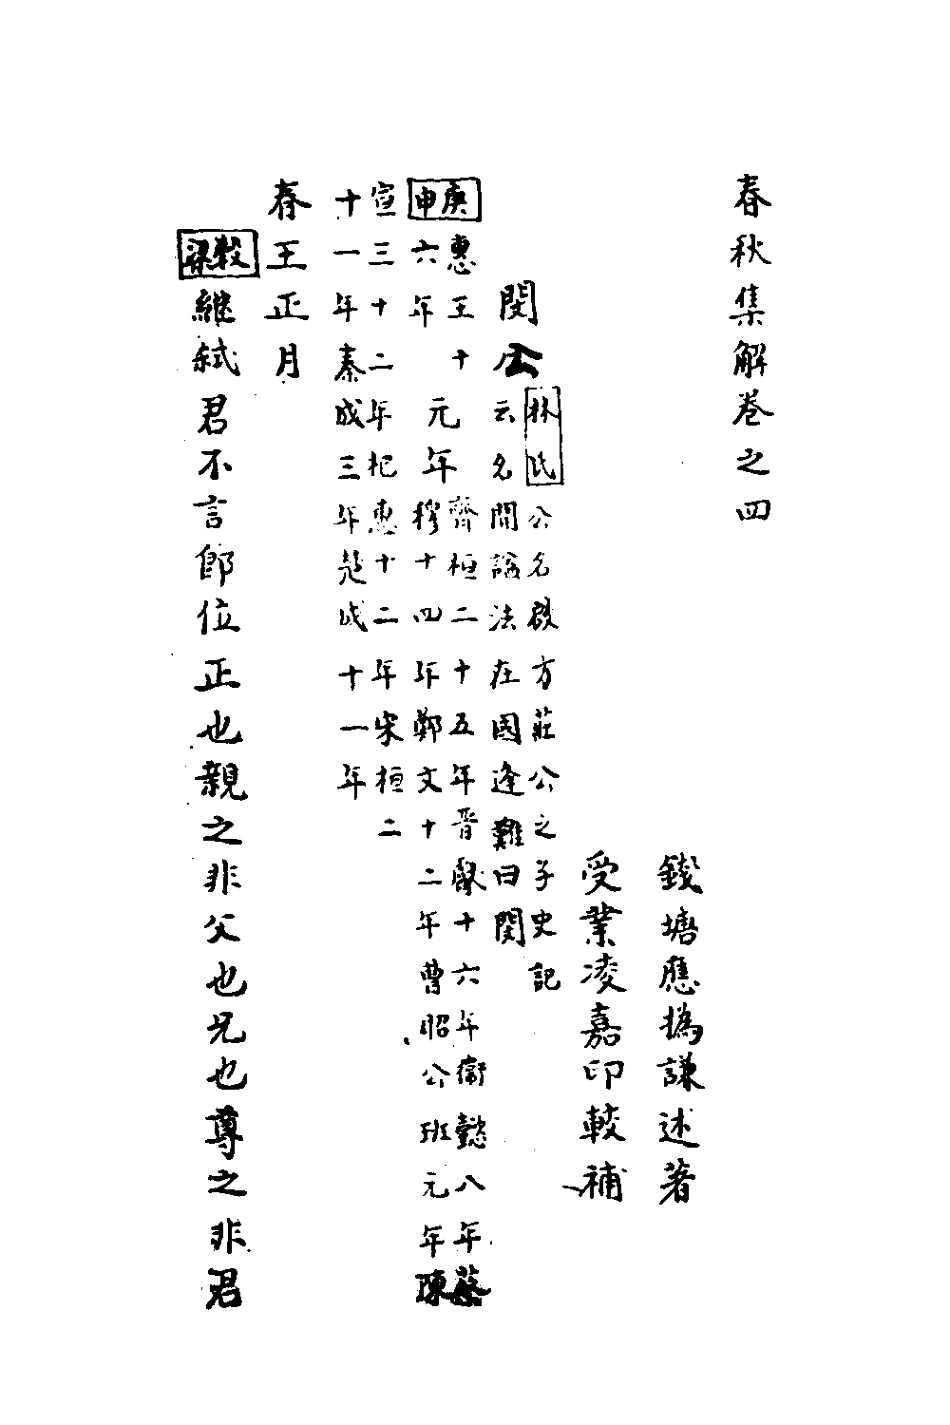 春秋集解卷之四
錢塘應撝謙述著
受業凌嘉印較補
閔公 林氏公名啟方莊公之子史記
云名開諡法在國逢難曰閔
庚申 惠王十六年 元年 齊桓二十五年晉獻十六年衞懿八年蔡
穆十四年鄭文十二年曹昭公班元年陳
宣三十二年杞惠十二年宋桓二
十一年秦成三年楚成十一年
春王正月
穀梁繼弒君不言卽位正也親之非父也兄也尊之非君